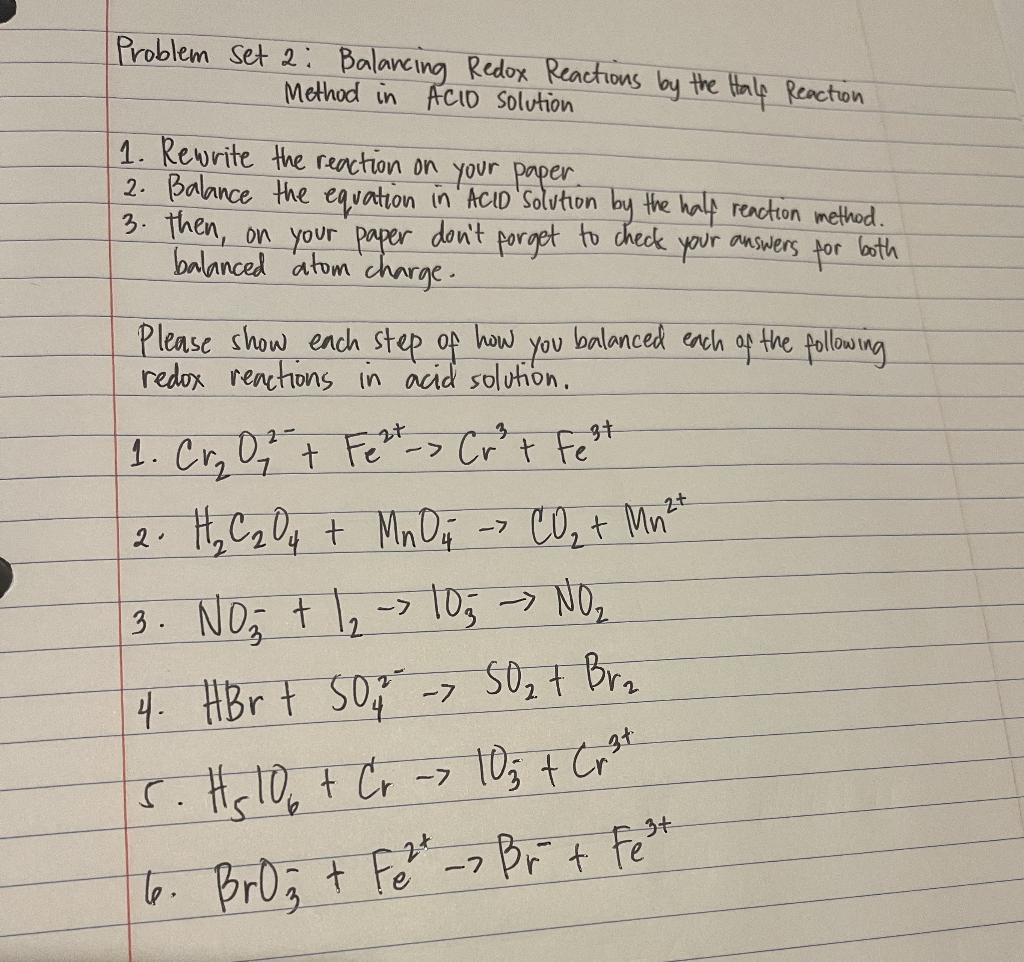 Problem Set 2: Balancing Redox Reactions by the Half Reaction
Method in ACID Solution
1. Rewrite the reaction on your paper.
2. Balance the equation in ACID Solution by the half reaction method.
3. then, on your paper don't forget to check your answers for both
balanced atom charge.
Please show each step of how you balanced each of the following
redox reactions in acid solution.
1. Cr₂O₇²⁻ + Fe²⁺ -> Cr³ + Fe³⁺
2. H₂C₂O₄ + MnO₄⁻ -> CO₂ + Mn²⁺
3. NO₃⁻ + I₂ -> IO₃⁻ -> NO₂
4. HBr + SO₄²⁻ -> SO₂ + Br₂
5. H₅IO₆ + Cr -> IO₃⁻ + Cr³⁺
6. BrO₃⁻ + Fe²⁺ -> Br⁻ + Fe³⁺